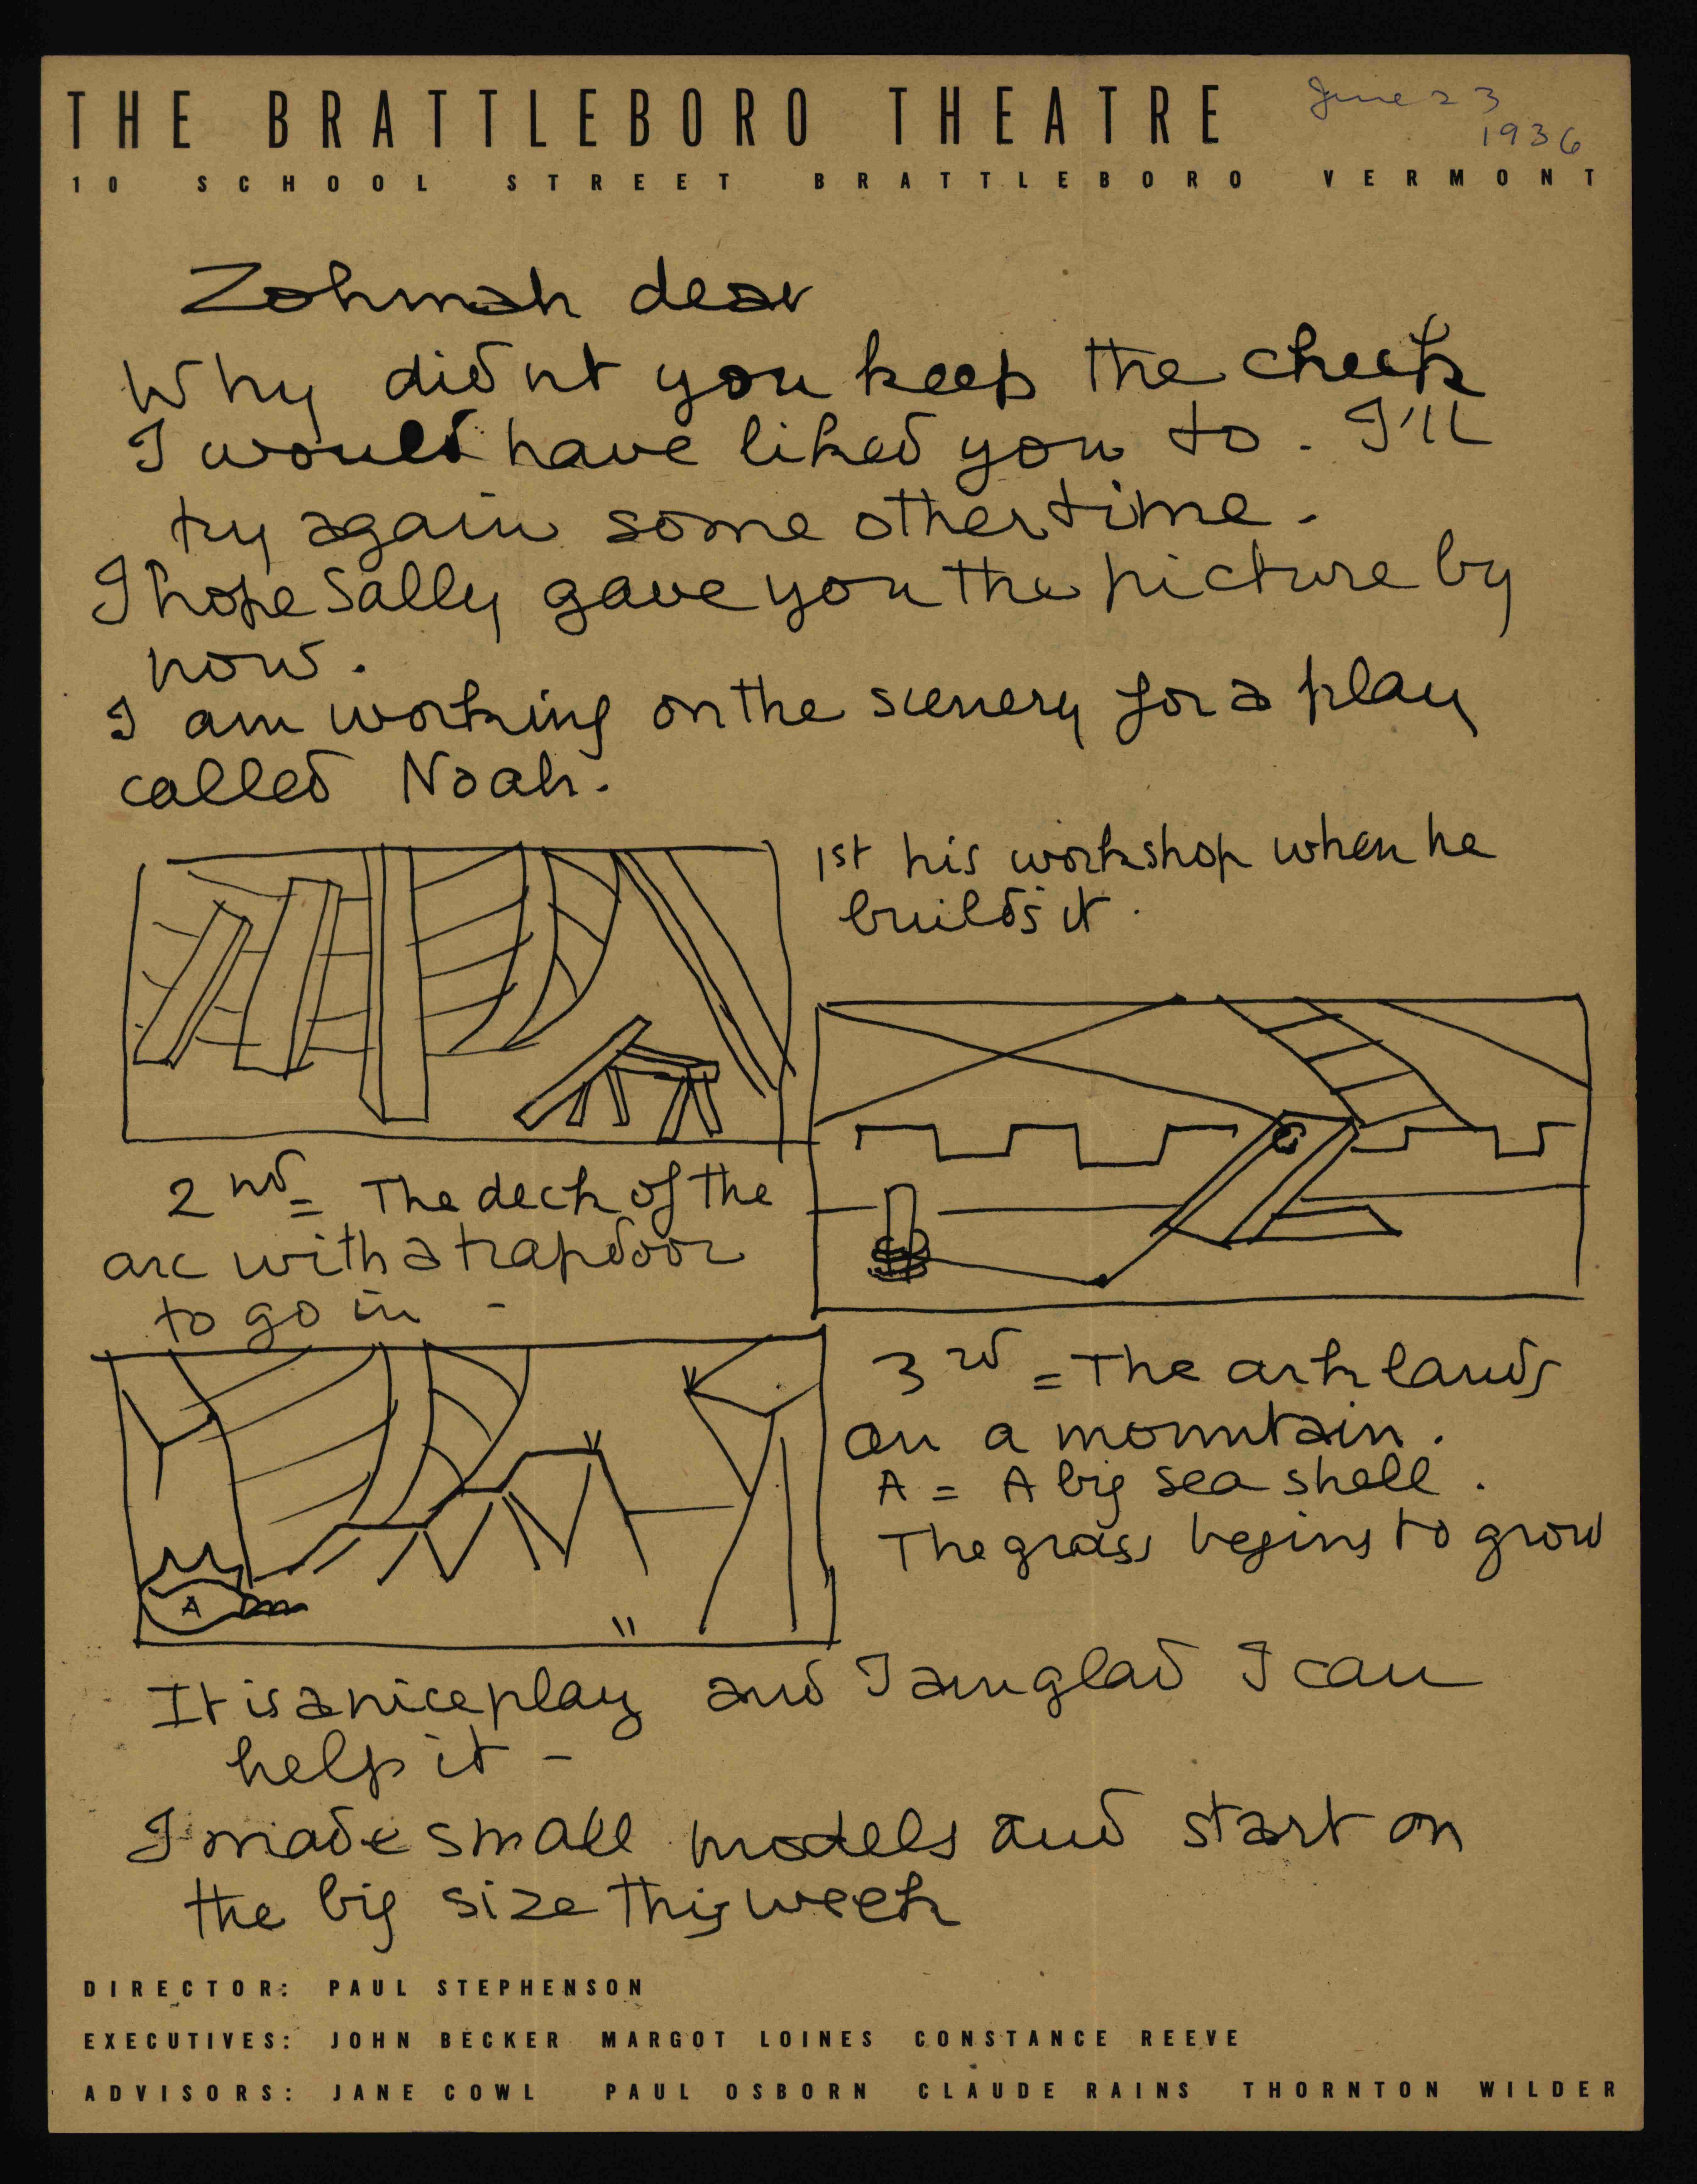 THE BRATTLEBORO THEATRE
June 23
1936
10 SCHOOL STREET BRATTLEBORO VERMONT
Zohmah dear
Why didnt you keep the check
I would have liked you to. I'll
try again some other time.
I hope Sally gave you the picture by
now.
I am working on the scenery for a play
called Noah.
1st his workshop when he
builds it.
2nd = The deck of the
arc with a trapdoor
to go in -
3rd = The ark lands
on a mountain.
A = A big sea shell.
The grass begins to grow
A
"
It is a nice play and I am glad I can
help it -
I made small models and start on
the big size this week
DIRECTOR: PAUL STEPHENSON
EXECUTIVES: JOHN BECKER MARGOT LOINES CONSTANCE REEVE
ADVISORS: JANE COWL PAUL OSBORN CLAUDE RAINS THORNTON WILDER